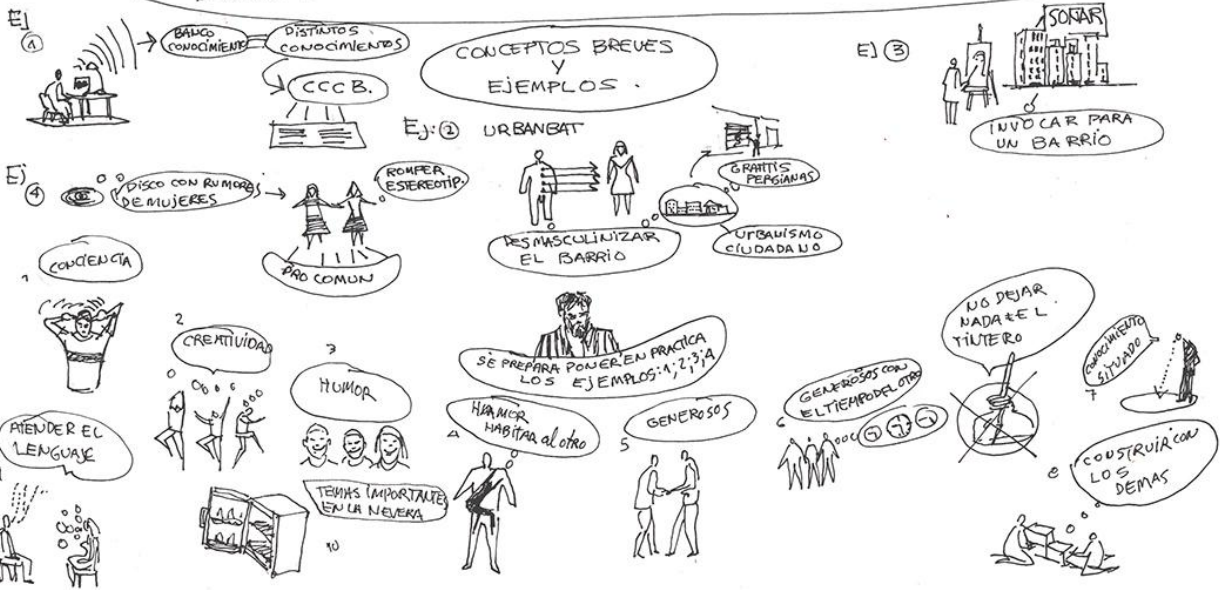 EJ
1
BANCO
CONOCIMIENTO
DISTINTOS
CONOCIMIENTOS
CCCB.
CONCEPTOS BREVES
Y
EJEMPLOS.
EJ 3
SOÑAR
INVOCAR PARA
UN BARRIO
EJ: 2 URBANBAT
GRAFITIS
PERSIANAS
URBANISMO
CIUDADANO
DESMASCULINIZAR
EL BARRIO
EJ
4
DISCO CON RUMORES
DE MUJERES
ROMPER
ESTEREOTIP.
PRO COMUN
SE PREPARA PONER EN PRACTICA
LOS EJEMPLOS: 1; 2; 3; 4
1
CONCIENCIA
2
CREATIVIDAD
3
HUMOR
4
HABITAR al otro
5
GENEROSOS
6
GENEROSOS CON
EL TIEMPO DEL OTRO
NO DEJAR
NADA EL
TINTERO
7
CONOCIMIENTO
SITUADO
8
CONSTRUIR CON
LOS
DEMAS
ATENDER EL
LENGUAJE
TEMAS IMPORTANTES
EN LA NEVERA
10